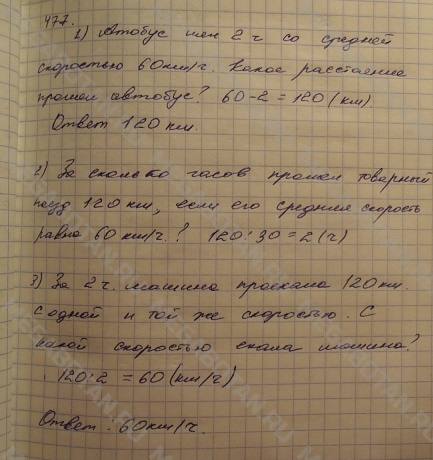 477.
1) Автобус шел 2 ч со средней
скоростью 60км/ч. Какое расстояние
прошел автобус? 60-2 = 120 (км)
Ответ 120 км.
2) За сколько часов прошел товарный
поезд 120 км, если его средняя скорость
равна 60 км/ч.? 120:30=2(ч)
3) За 2 ч. машина проехала 120 км.
с одной и той же скоростью. С
какой скоростью ехала машина?
120:2 = 60 (км/ч)
Ответ: 60км/ч.